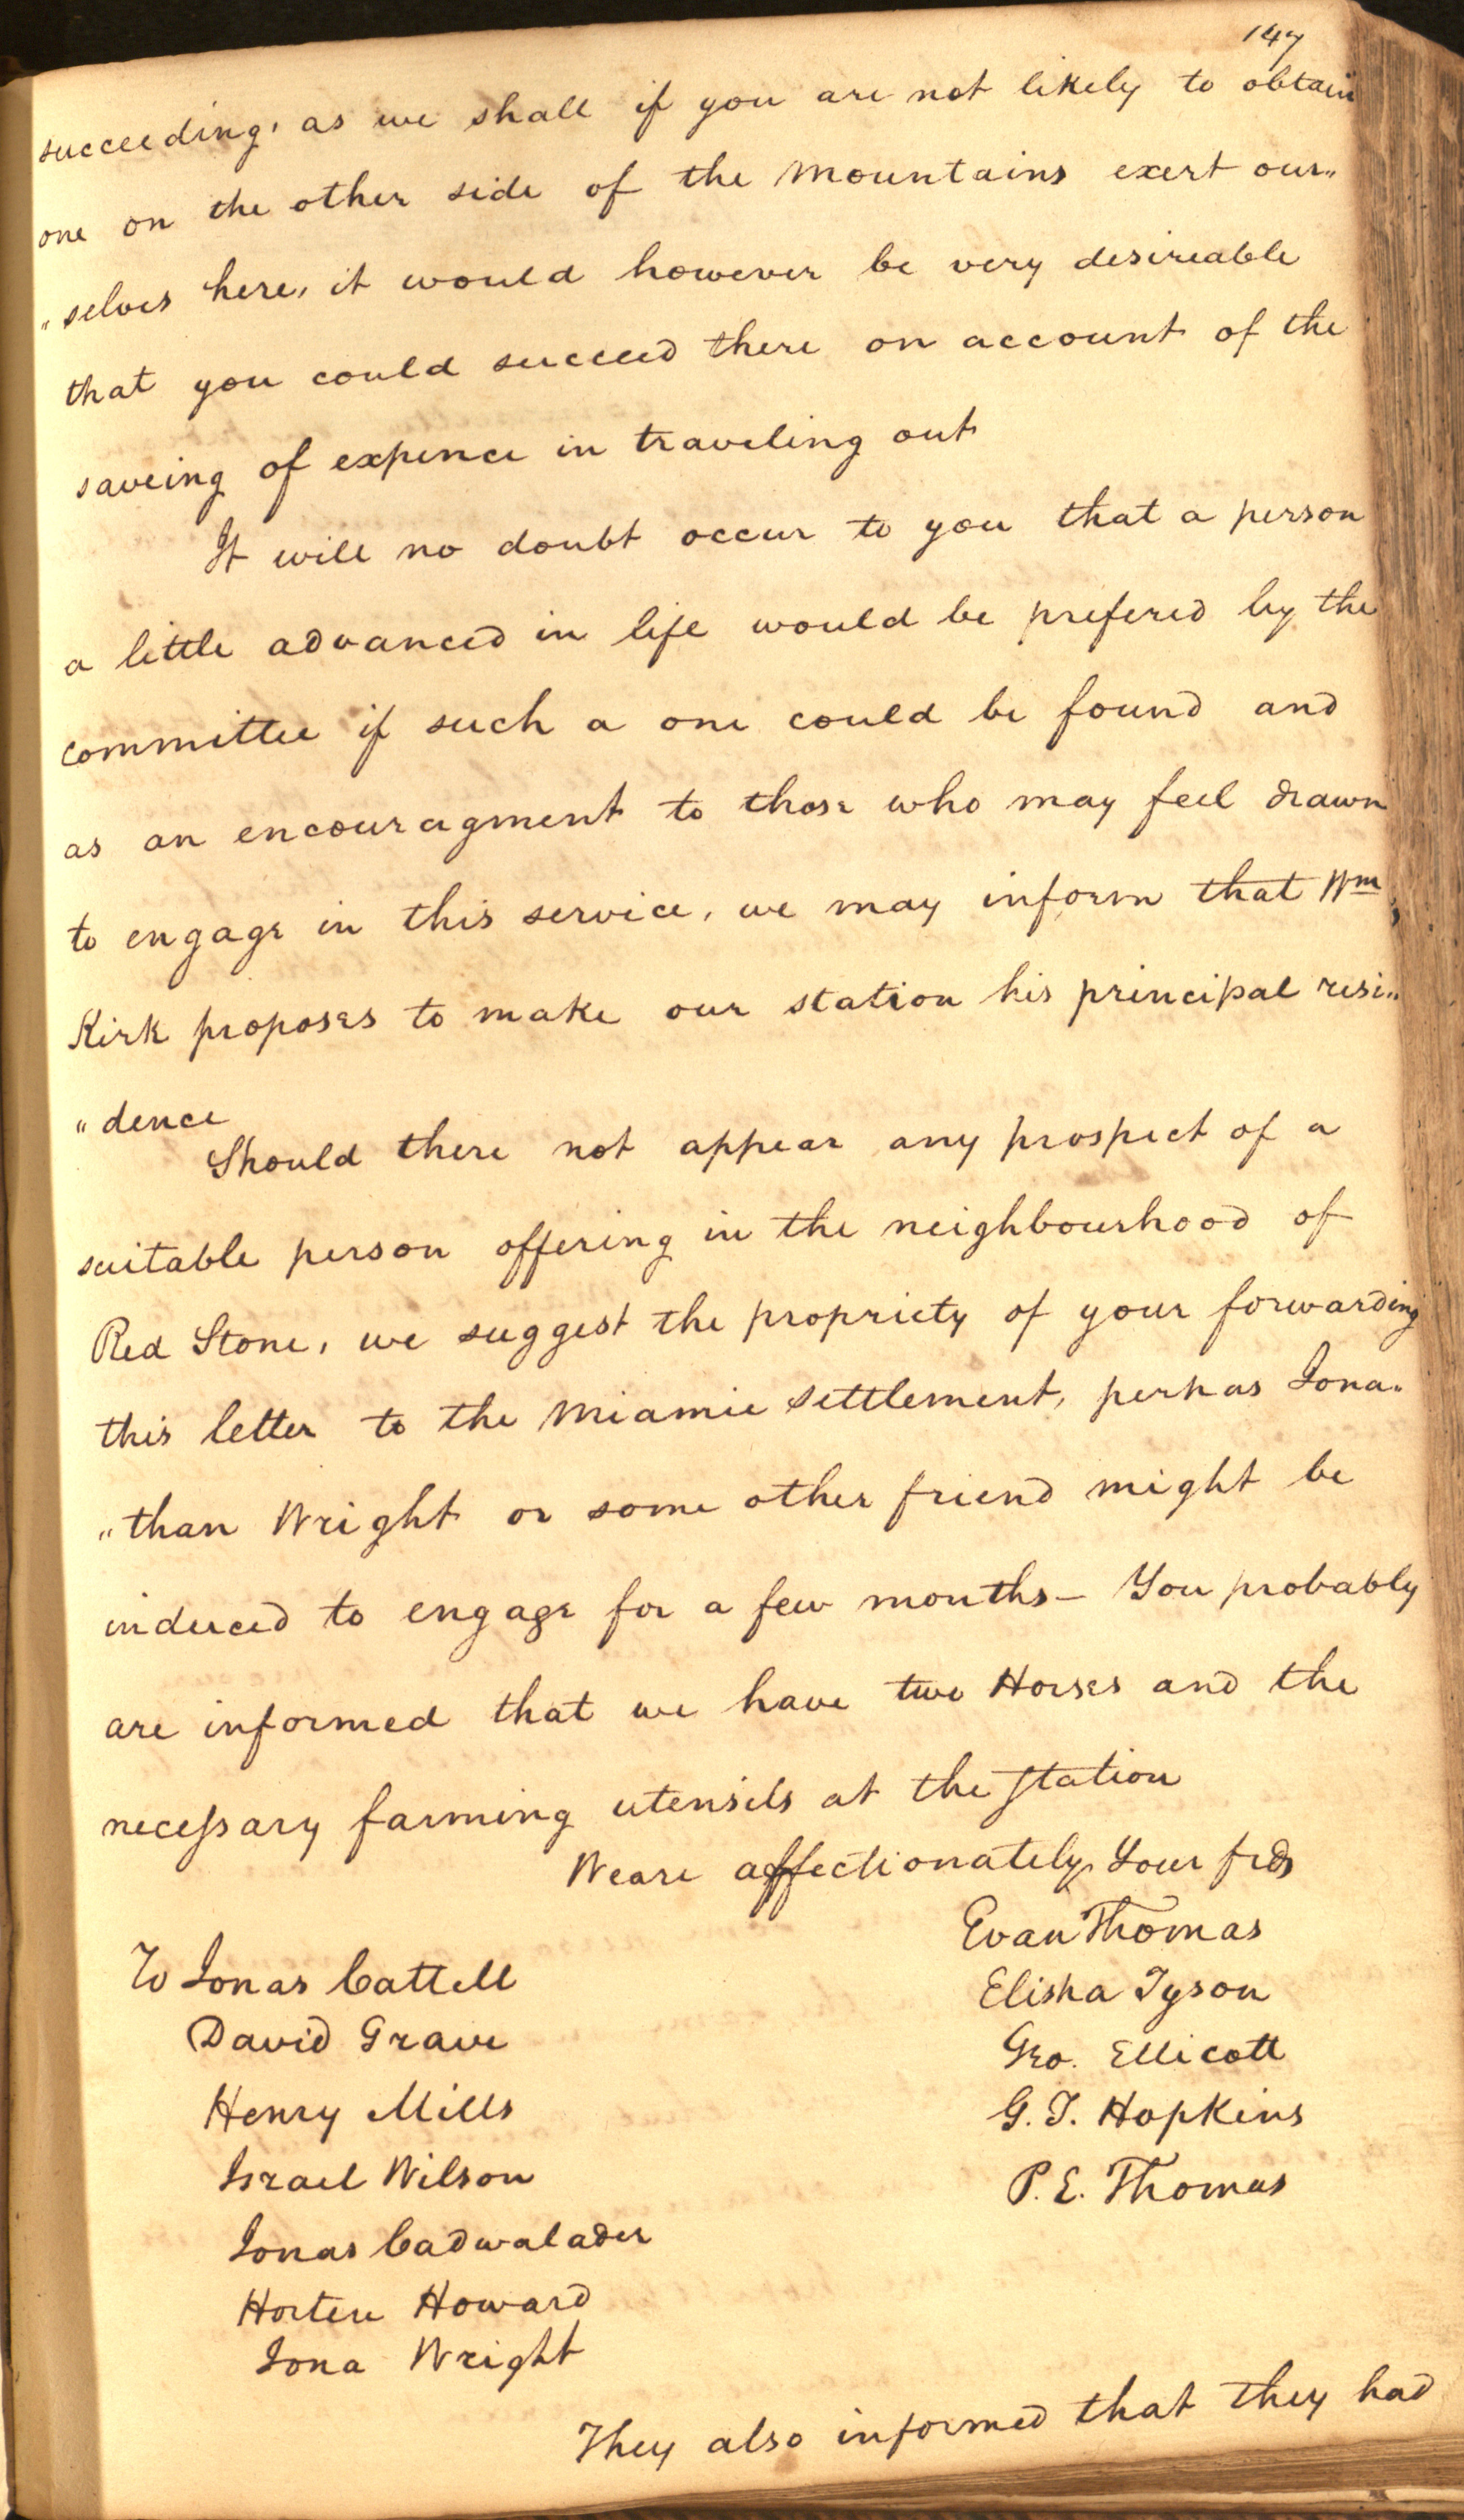 147
succeeding, as we shall if you are not likely to obtain
one on the other side of the Mountains exert our„
„selves here, it would however be very desireable
that you could succeed there on account of the
saveing of expence in traveling out
It will no doubt occur to you that a person
a little advanced in life would be prefered by the
committee if such a one could be found and
as an encouragment to those who may feel drawn
to engage in this service, we may inform that Wm,
Kirk proposes to make our station his principal resi„
„dence
Should there not appear any prospect of a
suitable person offering in the neighbourhood of
Red Stone, we suggest the propriety of your forwarding
this letter to the Miamie settlement, perhas Jona„
„than Wright or some other friend might be
induced to engage for a few months — You probably
are informed that we have two Horses and the
necessary farming utensils at the station
We are affectionately Your frds
Evan Thomas
To Jonas Cattell
Elisha Tyson
David Grave
Geo. Ellicott
Henry Mills
G. T. Hopkins
Israel Wilson
P. E. Thomas
Jonas Cadwalader
Horten Howard
Jona Wright
They also informed that they had